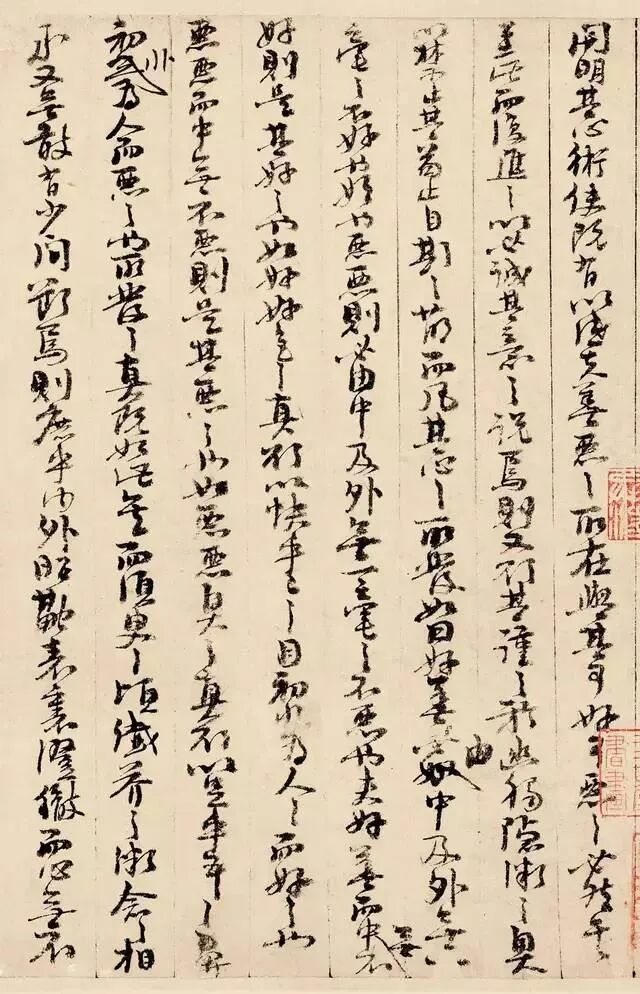 開明其心術使既有以識夫善惡之所在與其可好可惡之必然矣
至此而復進之以必誠其意之說焉則又欲其謹之於幽獨隱微之奧
以禁止其苟且自欺之萌而凡其心之所發如曰好善則必由中及外無一
毫之不好也如曰惡惡則必由中及外無一毫之不惡也夫好善而中無不
好則是其好之也如好好色之真欲以快乎己之目初非為人之而好之也
惡惡而中無不惡則是其惡之也如惡惡臭之真欲以足乎己之鼻
初非為人而惡之也所發之真既如此矣而須臾之頃纖芥之微念念相
承又無敢有少間斷焉則庶乎內外昭融表裏澄徹而心無不